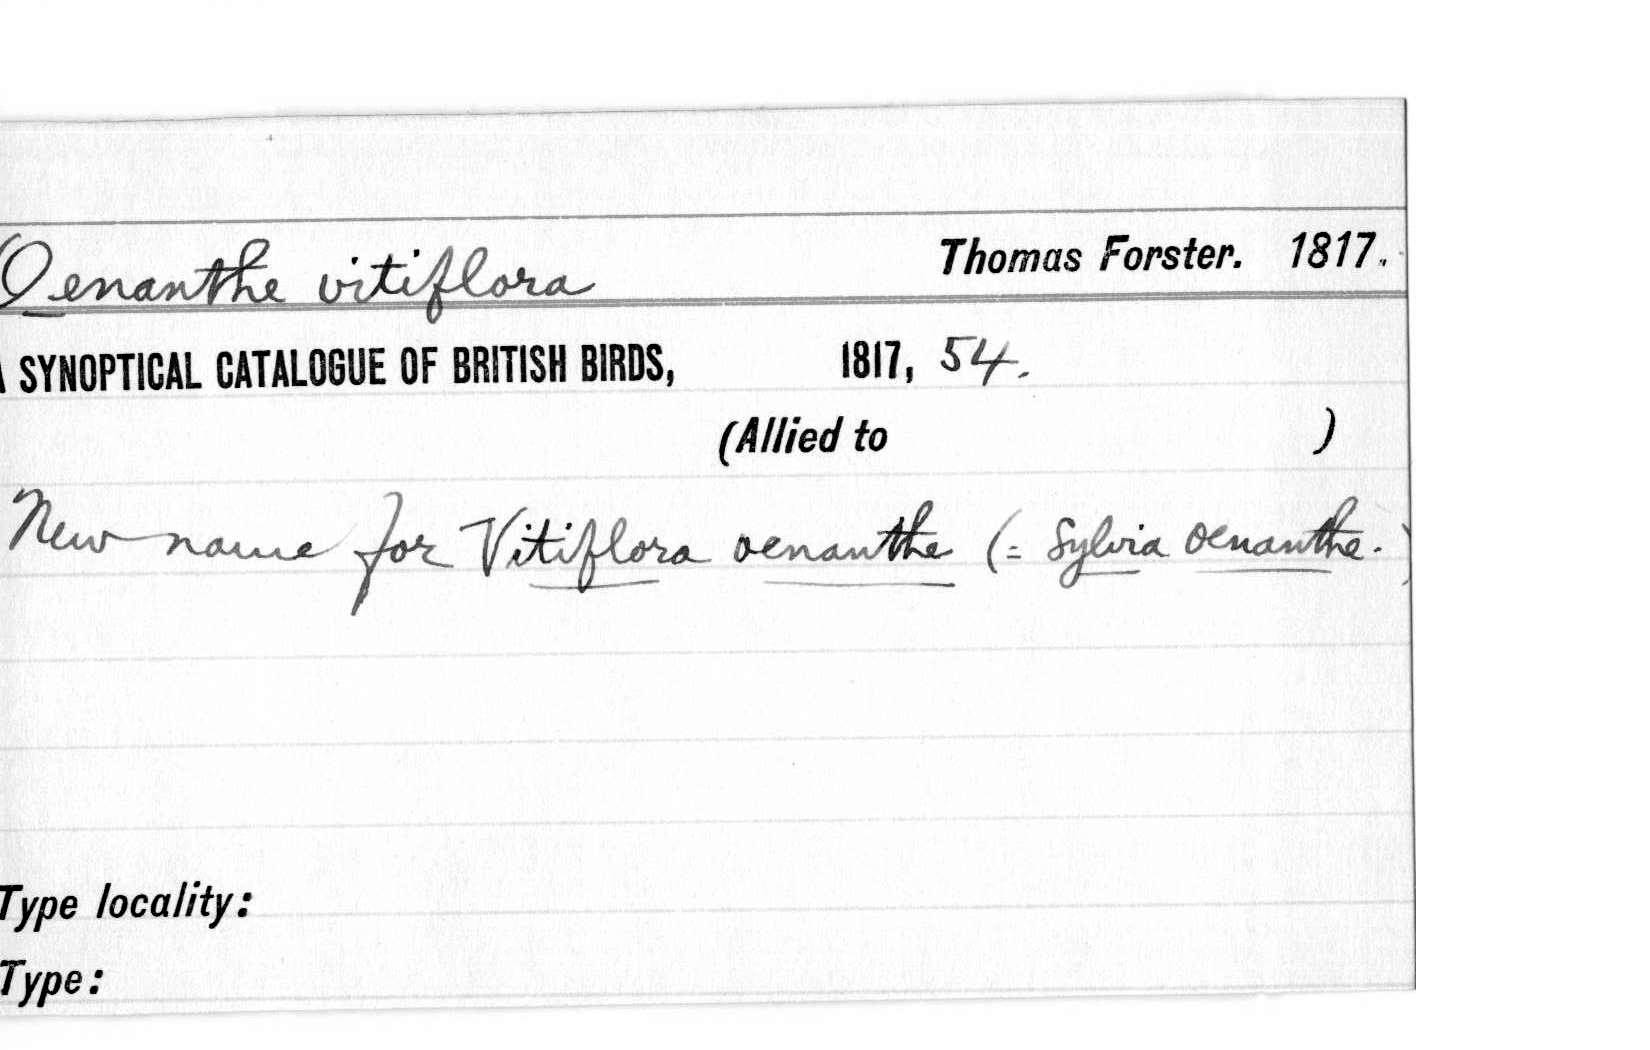 Oenanthe vitiflora Thomas Forster. 1817.
A SYNOPTICAL CATALOGUE OF BRITISH BIRDS, 1817, 54.
(Allied to )
New name for Vitiflora oenanthe (= Sylvia oenanthe. )
Type locality:
Type: